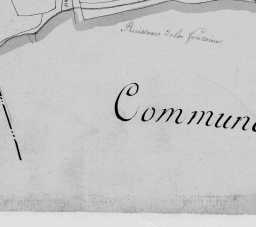 Ruisseau de la Fontaine
Commun